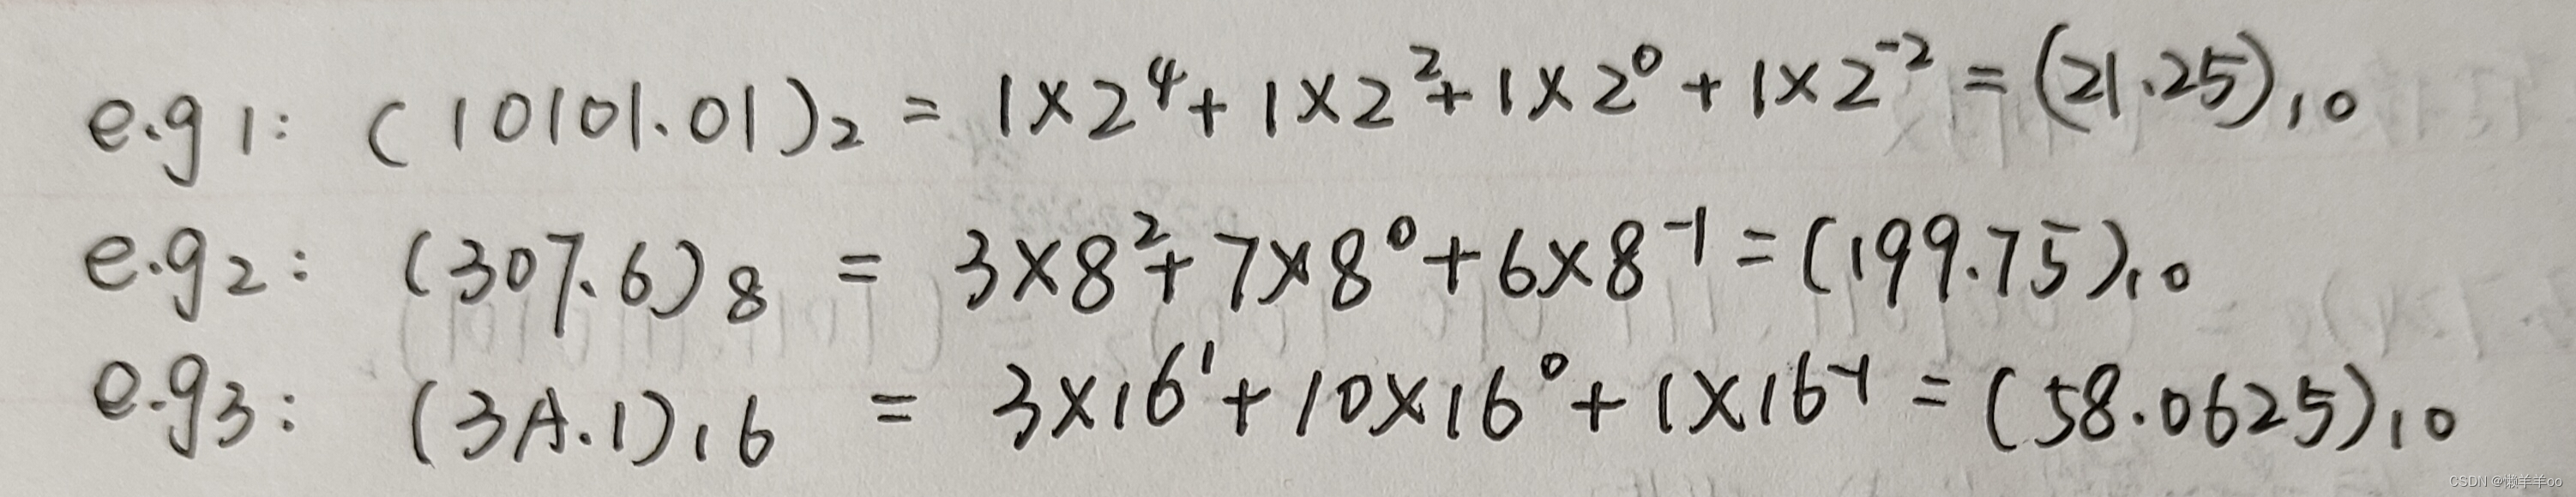 e.g1: (10101.01)₂ = 1×2⁴+1×2²+1×2⁰+1×2⁻²=(21.25)₁₀
e.g2: (307.6)₈ = 3×8²+7×8⁰+6×8⁻¹=(199.75)₁₀
e.g3: (3A.1)₁₆ = 3×16¹+10×16⁰+1×16⁻¹=(58.0625)₁₀
CSDN @懒羊羊oo